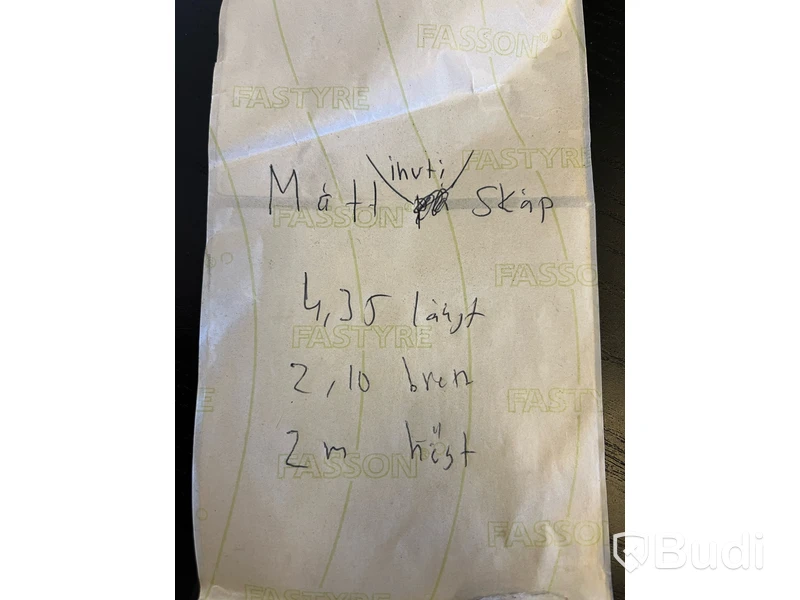 FASSON
FASTYRE
FASTYRE
Mått inuti skåp
FASSON
FASSON
4,35 långt
FASTYRE
2,10 bren
FAST
2 m högt
FASSON
FASSON
FASTYRE
Budi